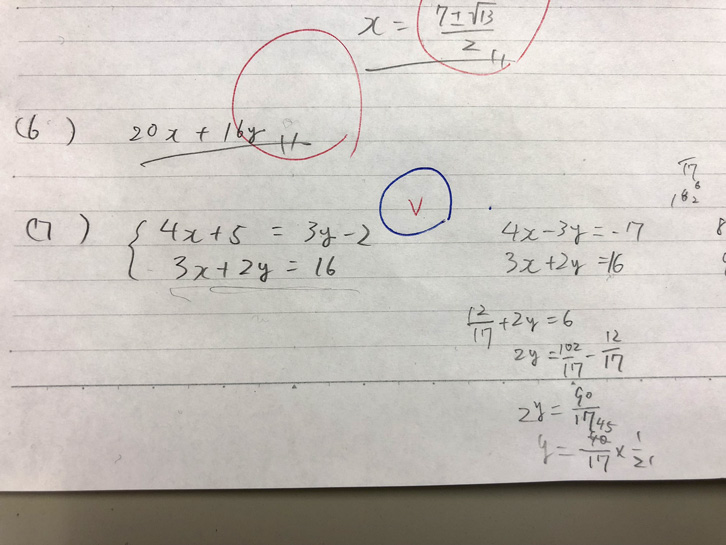 x = 7±√13/2
(6) 20x + 16y
(7) { 4x+5 = 3y-2
3x+2y = 16
4x-3y=-7
3x+2y=16
12/17+2y=6
2y=102/17-12/17
2y=90/17
y=45/17×1/2